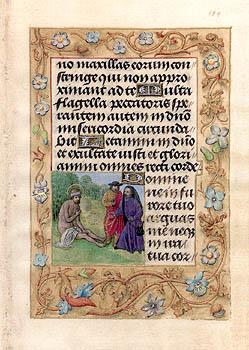 no maxillas eorum con
stringe qui non appro
ximant ad te Multa
flagella peccatoris spe
rantem autem in dño
misericordia circunda
bit Letamini in dño
et exultate iusti et glori
amini omnes recti corde
Domine
ne in fu
rore tuo
arguas
me neq
in ira
tua cor